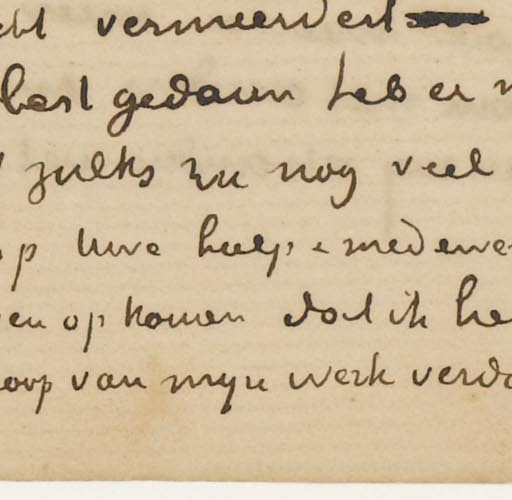 ebt vermeerdert
best gedaan heb er
zulks nu nog veel
op Uwe hulp & medewe
en op komen dat ik he
oop van mijn werk verd